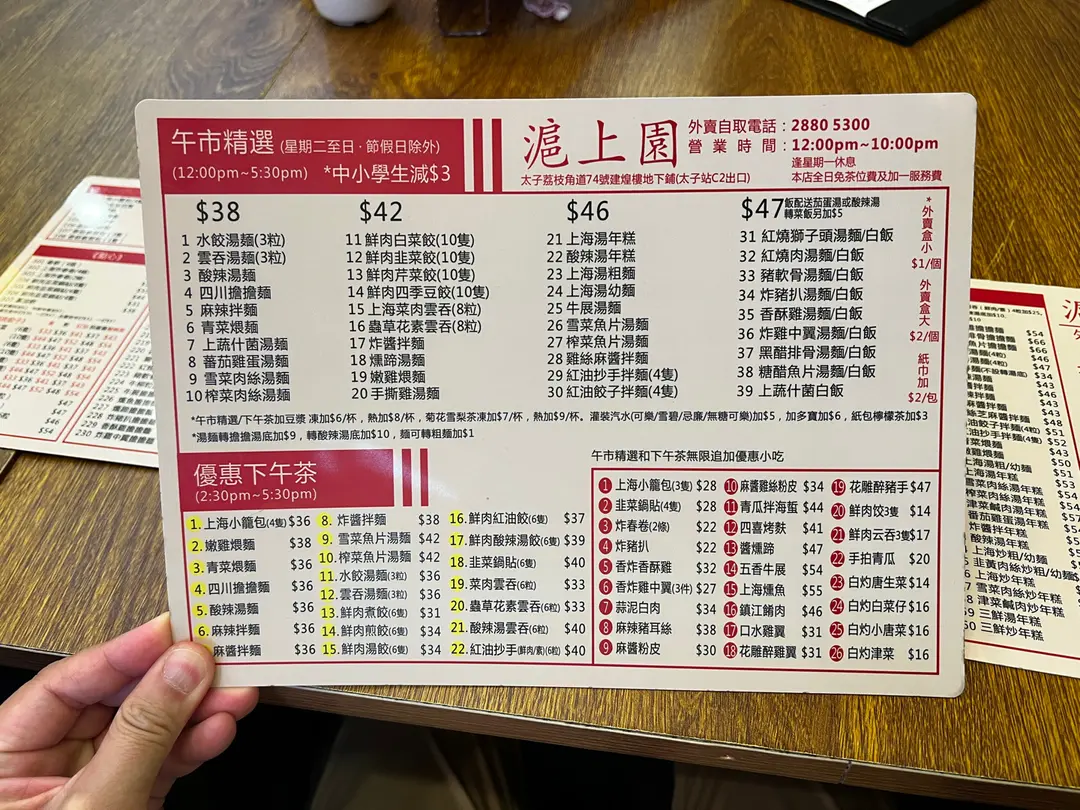 午市精選 (星期二至日 · 節假日除外)
(12:00pm~5:30pm) *中小學生減$3
滬上園
外賣自取電話：2880 5300
營業時間：12:00pm~10:00pm
逢星期一休息
太子荔枝角道74號建煌樓地下鋪(太子站C2出口)
本店全日免茶位費及加一服務費
$38
1 水餃湯麵(3粒)
2 雲吞湯麵(3粒)
3 酸辣湯麵
4 四川擔擔麵
5 麻辣拌麵
6 青菜煨麵
7 上蔬什菌湯麵
8 蕃茄雞蛋湯麵
9 雪菜肉絲湯麵
10 榨菜肉絲湯麵
$42
11 鮮肉白菜餃(10隻)
12 鮮肉韭菜餃(10隻)
13 鮮肉芹菜餃(10隻)
14 鮮肉四季豆餃(10隻)
15 上海菜肉雲吞(8粒)
16 蟲草花素雲吞(8粒)
17 炸醬拌麵
18 燻蹄湯麵
19 嫩雞煨麵
20 手撕雞湯麵
$46
21 上海湯年糕
22 酸辣湯年糕
23 上海湯粗麵
24 上海湯幼麵
25 牛展湯麵
26 雪菜魚片湯麵
27 榨菜魚片湯麵
28 雞絲麻醬拌麵
29 紅油抄手拌麵(4隻)
30 紅油餃子拌麵(4隻)
$47 飯配送茄蛋湯或酸辣湯
轉菜飯另加$5
31 紅燒獅子頭湯麵/白飯
32 紅燒肉湯麵/白飯
33 豬軟骨湯麵/白飯
34 炸豬扒湯麵/白飯
35 香酥雞湯麵/白飯
36 炸雞中翼湯麵/白飯
37 黑醋排骨湯麵/白飯
38 糖醋魚片湯麵/白飯
39 上蔬什菌白飯
*外賣盒小
$1/個
外賣盒大
$2/個
紙巾加
$2/包
*午市精選/下午茶加豆漿 凍加$6/杯，熱加$8/杯，菊花雪梨茶凍加$7/杯，熱加$9/杯。灌裝汽水(可樂/雪碧/忌廉/無糖可樂)加$5，加多寶加$6，紙包檸檬茶加$3
*湯麵轉擔擔湯底加$9，轉酸辣湯底加$10，麵可轉粗麵加$1
優惠下午茶
(2:30pm~5:30pm)
1. 上海小籠包(4隻) $36
2. 嫩雞煨麵 $38
3. 青菜煨麵 $36
4. 四川擔擔麵 $36
5. 酸辣湯麵 $36
6. 麻辣拌麵 $36
麻醬拌麵 $36
8. 炸醬拌麵 $38
9. 雪菜魚片湯麵 $42
10. 榨菜魚片湯麵 $42
11. 水餃湯麵(3粒) $36
12. 雲吞湯麵(3粒) $36
13. 鮮肉煮餃(6隻) $31
14. 鮮肉煎餃(6隻) $34
15. 鮮肉湯餃(6隻) $34
16. 鮮肉紅油餃(6隻) $37
17. 鮮肉酸辣湯餃(6隻) $39
18. 韭菜鍋貼(6隻) $40
19. 菜肉雲吞(6粒) $33
20. 蟲草花素雲吞(6粒) $33
21. 酸辣湯雲吞(6粒) $40
22. 紅油抄手(鮮肉/素)(6粒) $40
午市精選和下午茶無限追加優惠小吃
1 上海小籠包(3隻) $28
2 韭菜鍋貼(4隻) $28
3 炸春卷(2條) $22
4 炸豬扒 $22
5 香炸香酥雞 $32
6 香炸雞中翼(3件) $27
7 蒜泥白肉 $34
8 麻辣豬耳絲 $38
9 麻醬粉皮 $30
10 麻醬雞絲粉皮 $34
11 青瓜拌海蜇 $44
12 四喜烤麩 $41
13 醬燻蹄 $47
14 五香牛展 $54
15 上海燻魚 $55
16 鎮江餚肉 $46
17 口水雞翼 $31
18 花雕醉雞翼 $31
19 花雕醉豬手 $47
20 鮮肉饺3隻 $14
21 鮮肉云吞3隻 $17
22 手拍青瓜 $20
23 白灼唐生菜 $14
24 白灼白菜仔 $16
25 白灼小唐菜 $16
26 白灼津菜 $16